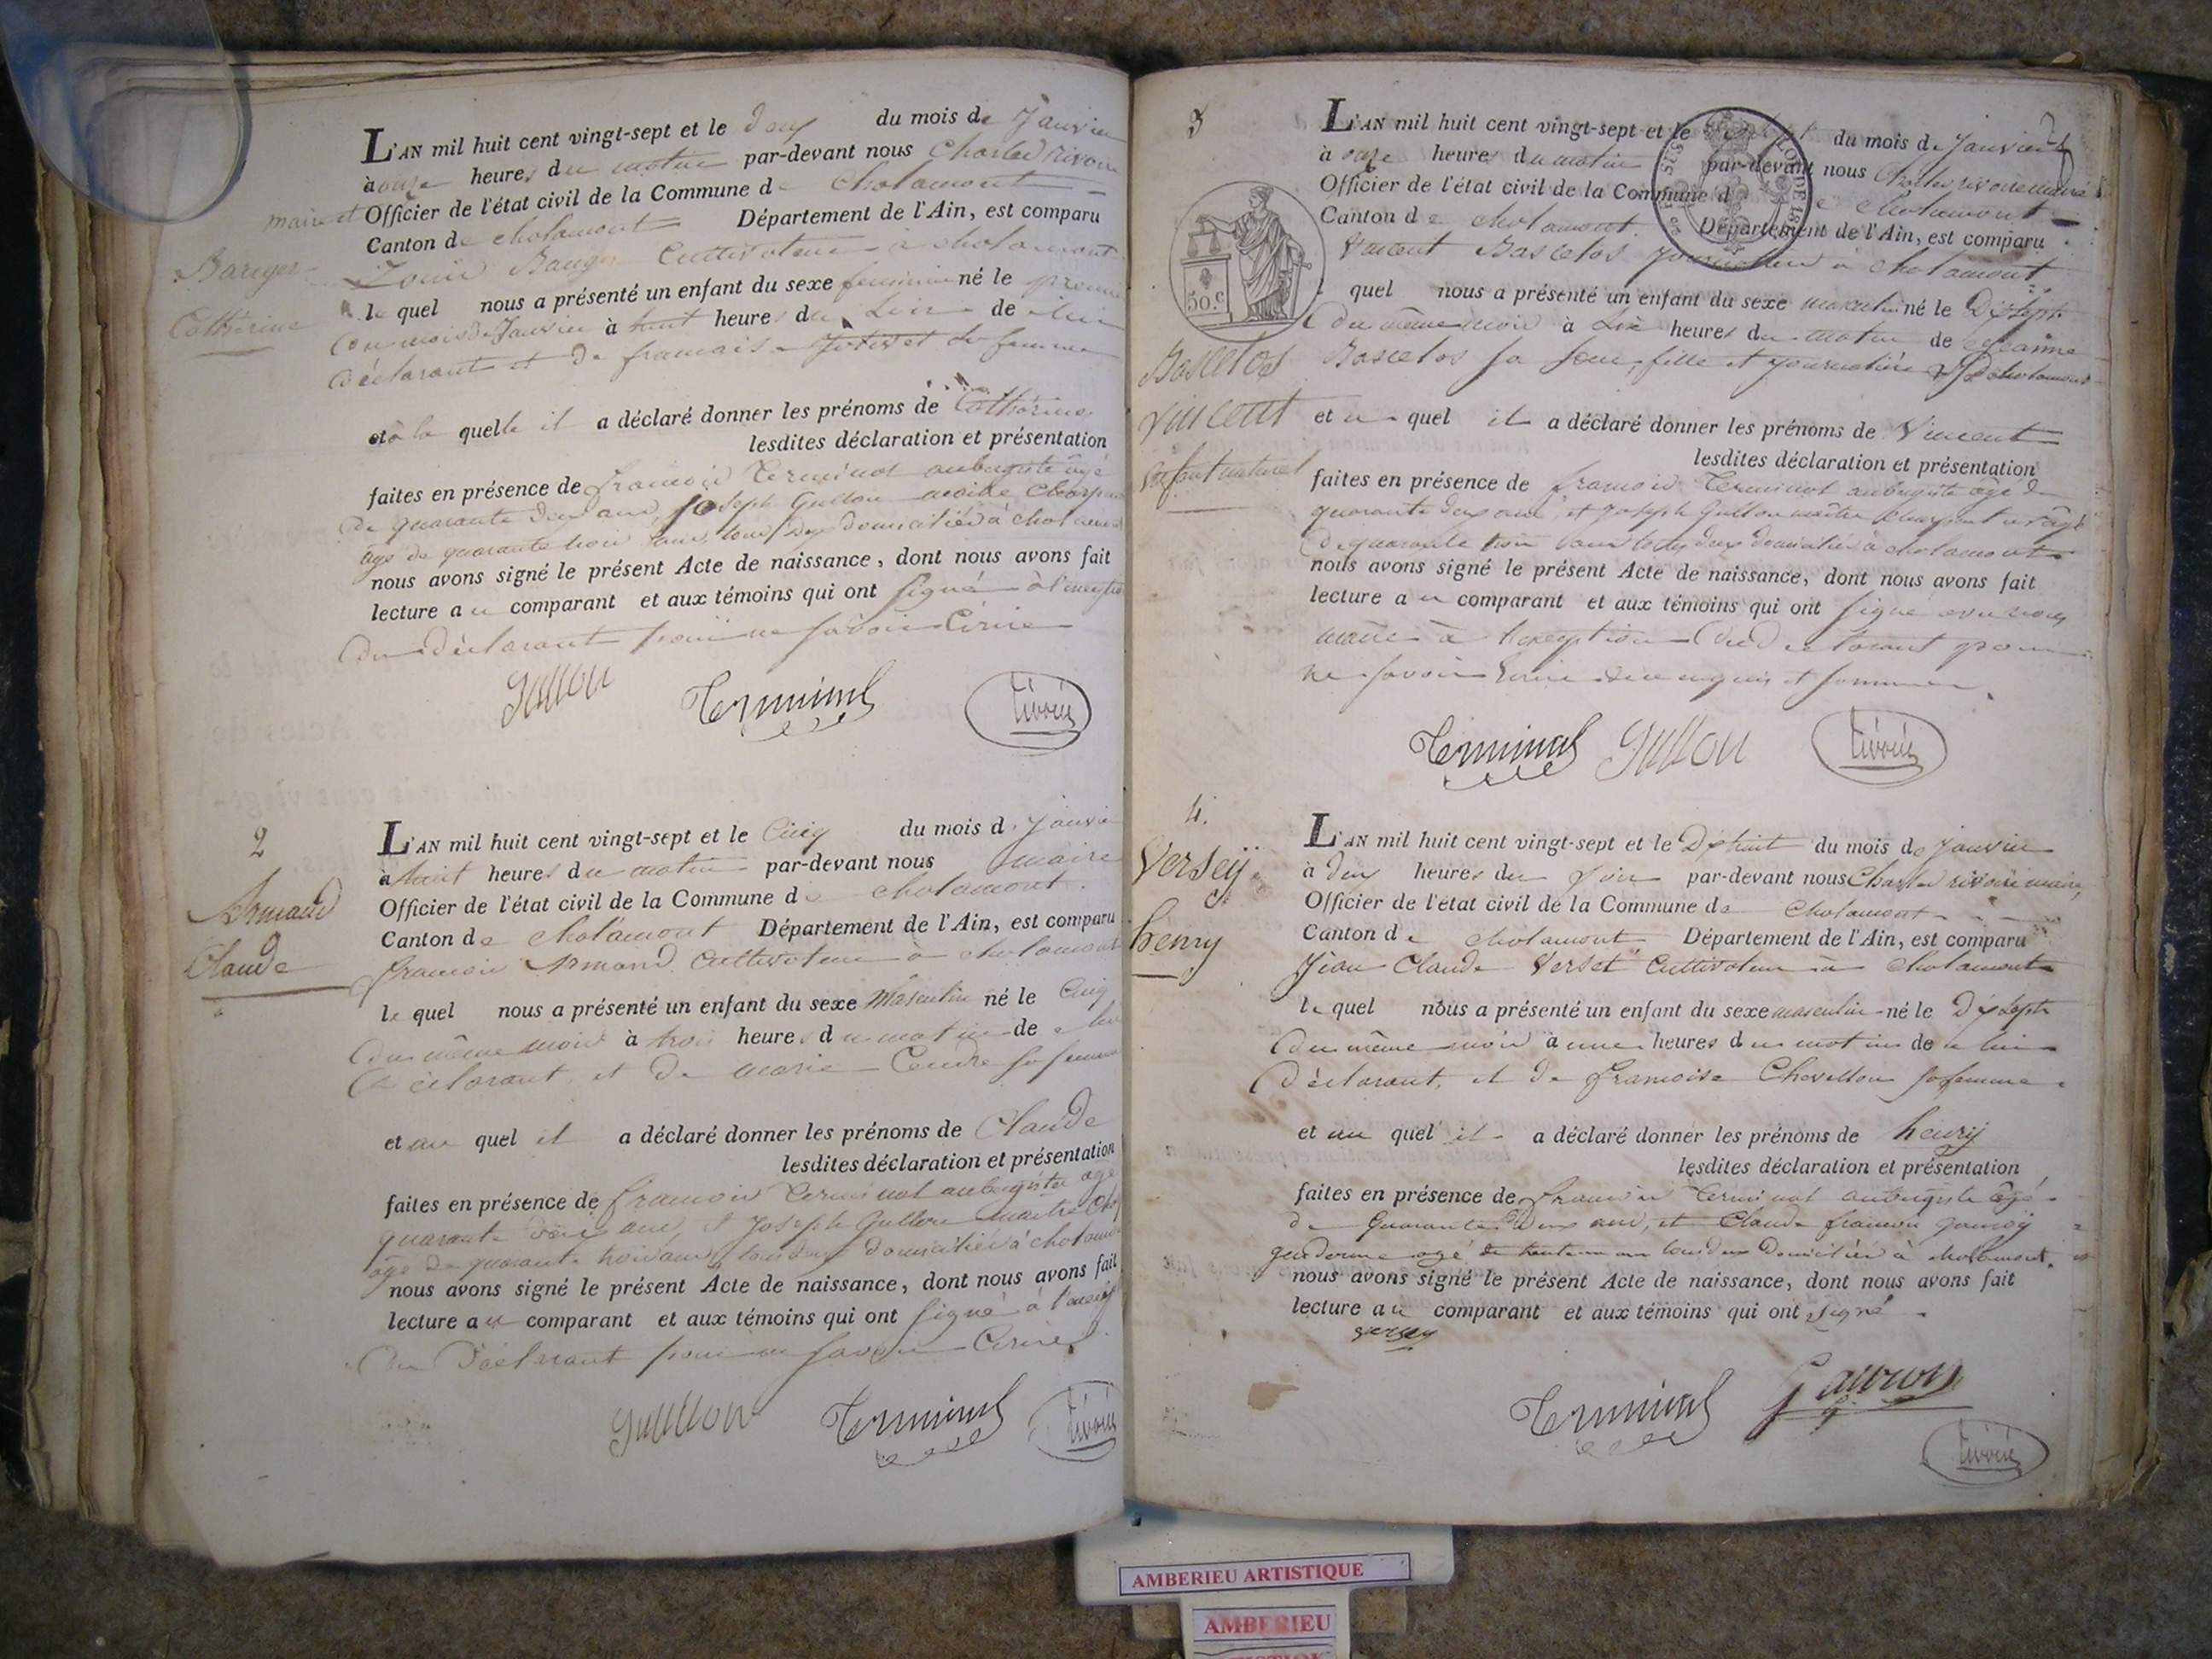 L'AN mil huit cent vingt-sept et le deux du mois de Janvier
à onze heures du matin par-devant nous Charles Rivoire
maire et Officier de l'état civil de la Commune de Cholamont
Canton de Cholamont Département de l'Ain, est comparu
Cultivateur à Cholamont
le quel nous a présenté un enfant du sexe féminin né le premier
du mois de Janvier à huit heures du Soir de lui
déclarant et de femme
et à la quelle il a déclaré donner les prénoms de Catherine
lesdites déclaration et présentation
faites en présence de françois Terminal aubergiste âgé
de quarante deux ans, Joseph Gullon maitre Charpentier
âgé de quarante trois ans, tous deux domiciliés à Cholamont
nous avons signé le présent Acte de naissance, dont nous avons fait
lecture au comparant et aux témoins qui ont signé à l'exception
du déclarant pour ne savoir Ecrire
Gullon Terminal rivoire
Catherine
2
Armand
Claude
L'AN mil huit cent vingt-sept et le Cinq du mois de Janvier
à huit heures du matin par-devant nous maire
Officier de l'état civil de la Commune de Cholamont
Canton de Cholamont Département de l'Ain, est comparu
françois Armand Cultivateur à Cholamont
le quel nous a présenté un enfant du sexe Masculin né le Cinq
du même mois à trois heures du matin de lui
déclarant, et de marie sa femme
et au quel il a déclaré donner les prénoms de Claude
lesdites déclaration et présentation
faites en présence de françois Terminal aubergiste âgé
quarante deux ans, et Joseph Gullon maitre
âgé de quarante trois ans, tous deux domiciliés à Cholamont
nous avons signé le présent Acte de naissance, dont nous avons fait
lecture au comparant et aux témoins qui ont signé à l'exception
du déclarant pour ne savoir Ecrire
Gullon Terminal rivoire
3
L'AN mil huit cent vingt-sept et le du mois de Janvier
à onze heures du matin par-devant nous Charles rivoire maire
Officier de l'état civil de la Commune de Cholamont
Canton de Cholamont. Département de l'Ain, est comparu
Vincent Bascelos journalier à Cholamont
quel nous a présenté un enfant du sexe masculin né le Dixsept
du même mois à Six heures du matin de Jeanne
Bascelos sa soeur, fille et journalière à Cholamont
50.c
Bascelos
Vincent
enfant naturel
et au quel il a déclaré donner les prénoms de Vincent
lesdites déclaration et présentation
faites en présence de françois Terminal aubergiste âgé de
quarante deux ans, et Joseph Gullon maitre Charpentier âgé
de quarante trois ans tous deux domiciliés à Cholamont
nous avons signé le présent Acte de naissance, dont nous avons fait
lecture au comparant et aux témoins qui ont signé avec nous
maire à l'exception du Déclarant pour
ne savoir Ecrire de ce enquis et sommé
Terminal Gullon rivoire
4.
Verseÿ
henry
L'AN mil huit cent vingt-sept et le Dixhuit du mois de janvier
à deux heures du Soir par-devant nous Charles rivoire maire,
Officier de l'état civil de la Commune de Cholamont
Canton de Cholamont Département de l'Ain, est comparu
Jean Claude Verset Cultivateur à Cholamont
le quel nous a présenté un enfant du sexe masculin né le Dixsept
du même mois à une heures du matin de lui
déclarant, et de françoise Chevillon sa femme
et au quel il a déclaré donner les prénoms de henrÿ
lesdites déclaration et présentation
faites en présence de françois Terminal aubergiste âgé
de quarante Deux ans, et Claude françois
gendarme agé de trente un ans tous deux Domiciliés à Cholamont.
nous avons signé le présent Acte de naissance, dont nous avons fait
lecture au comparant et aux témoins qui ont signé
versey
Terminal rivoire
AMBERIEU ARTISTIQUE
AMBERIEU